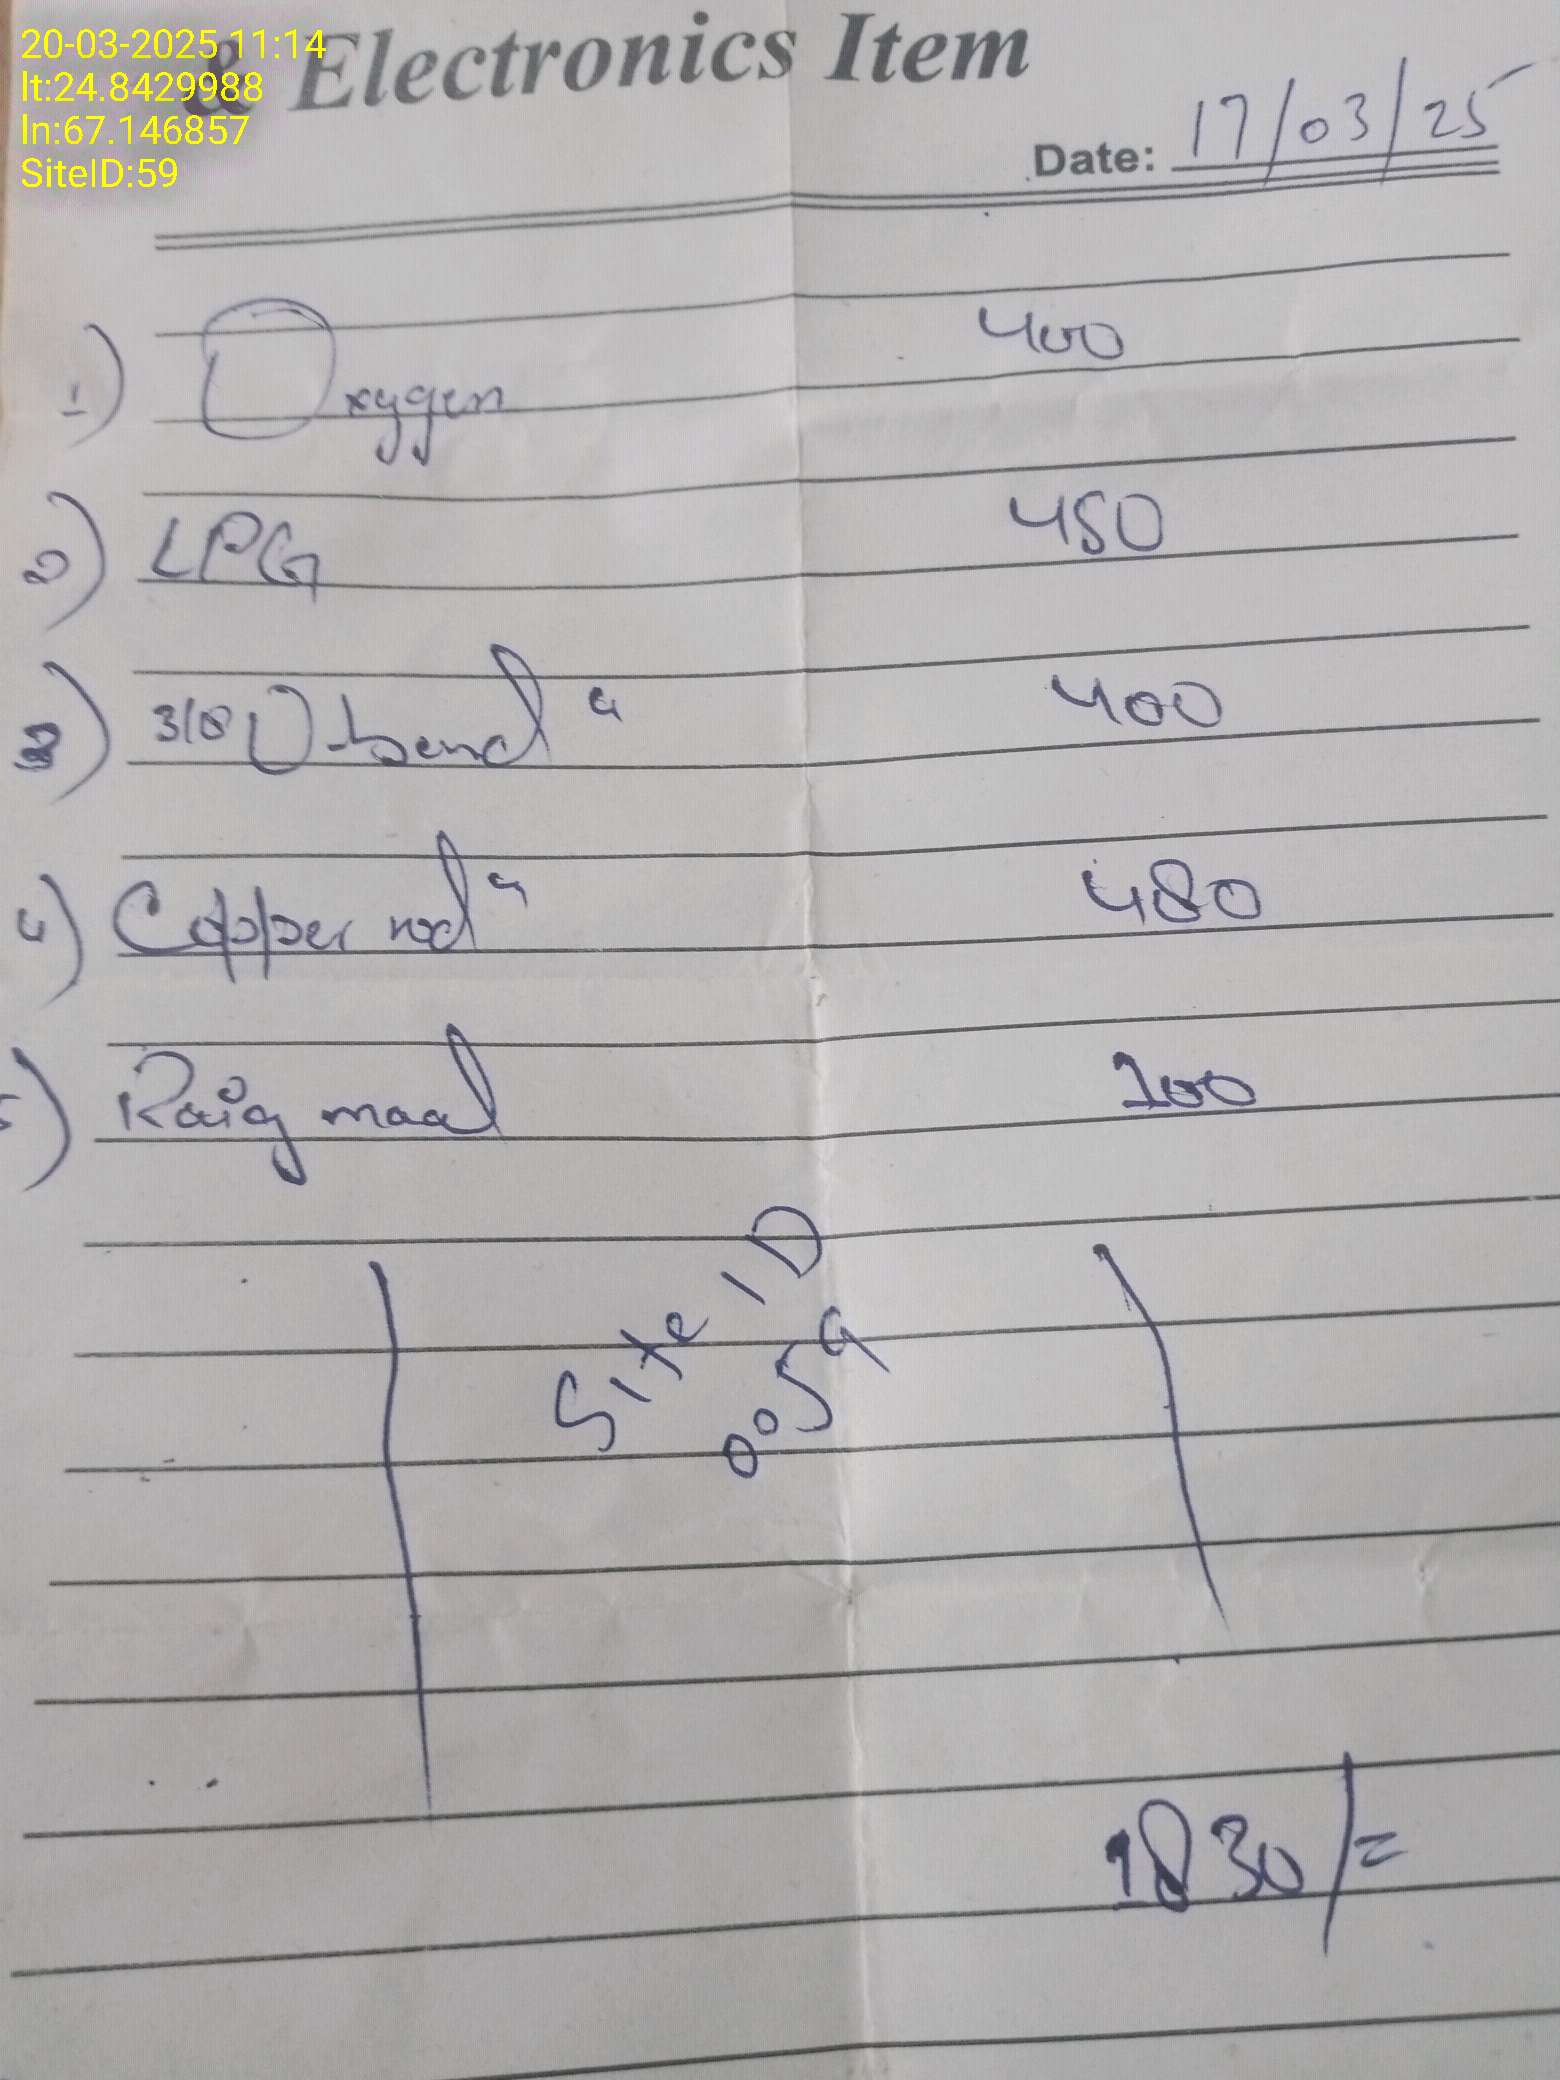 20-03-2025 11:14
lt:24.8429988
ln:67.146857
SiteID:59
& Electronics Item
Date: 17/03/25
1) Oxygen 400
2) LPG 450
3) 3/8 U-bend 4 400
4) Copper rod 4 480
5) Raig maal 100
Site ID
0059
1830/=